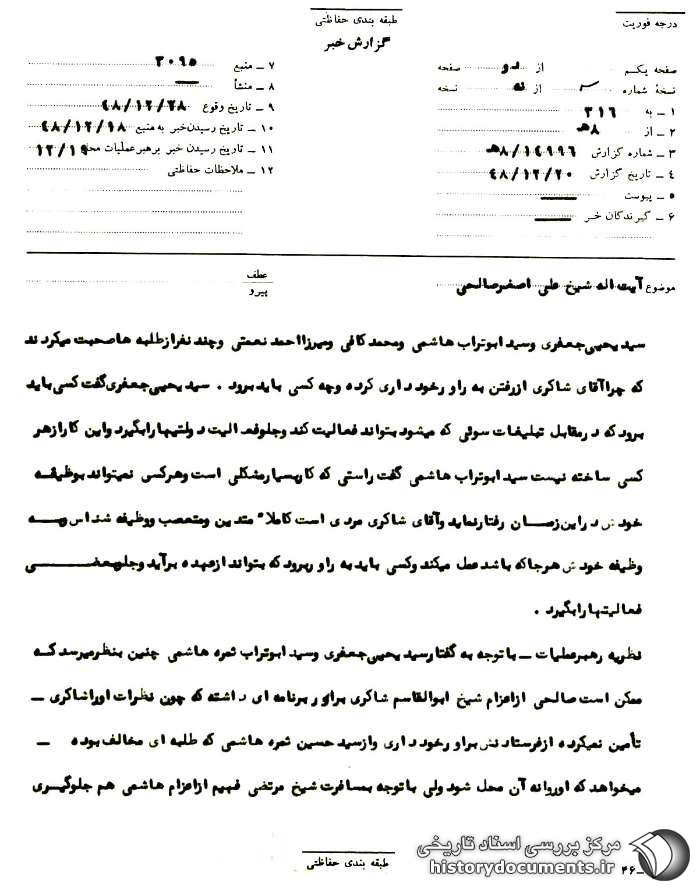 درجه فوریت
طبقه بندی حفاظتی
گزارش خبر
صفحه یکم از دو صفحه
نسخهٔ شماره از نسخه
۱ ـ به ۳۱۶
۲ ـ از ۸ﻫ
۳ ـ شماره گزارش ۸/۱۴۹۹۶ﻫ
۴ ـ تاریخ گزارش ۴۸/۱۲/۲۰
۵ ـ پیوست
۶ ـ گیرندگان خبر
۷ ـ منبع ۲۰۹۵
۸ ـ منشأ
۹ ـ تاریخ وقوع ۴۸/۱۲/۲۸
۱۰ ـ تاریخ رسیدن خبر به منبع ۴۸/۱۲/۱۸
۱۱ ـ تاریخ رسیدن خبر برهبر عملیات محل ۱۲/۱۹
۱۲ ـ ملاحظات حفاظتی
موضوع آیت اله شیخ علی اصغر صالحی
عطف
پیرو
سید یحیی جعفری وسید ابوتراب هاشمی ومحمد کافی ومیرزا احمد نعمتی وچند نفر از طلبه ها صحبت میکردند
که چرا آقای شاکری از رفتن به راور خود داری کرده وچه کسی باید برود . سید یحیی جعفری گفت کسی باید
برود که در مقابل تبلیغات سوئی که میشود بتواند فعالیت کند وجلو فعالیت دولتیها را بگیرد واین کار از هر
کسی ساخته نیست سید ابوتراب هاشمی گفت راستی که کار بسیار مشکلی است وهرکسی نمیتواند بوظیفه
خودش در این زمان رفتار نماید وآقای شاکری مردی است کاملاً متدین ومتعصب ووظیفه شناس وبه
وظیفه خودش هرجا که باشد عمل میکند وکسی باید به راور برود که بتواند از عهده برآید وجلو بعضی
فعالیتها را بگیرد .
نظریه رهبر عملیات ـ با توجه به گفتار سید یحیی جعفری وسید ابوتراب ثمره هاشمی چنین بنظر میرسد که
ممکن است صالحی از اعزام شیخ ابوالقاسم شاکری براور برنامه ای داشته که چون نظرات او را شاکری ـ
تأمین نمیکرده از فرستادنش براور خود داری واز سید حسین ثمره هاشمی که طلبه ای مخالف بوده ـ
میخواهد که او روانه آن محل شود ولی با توجه بمسافرت شیخ مرتضی فهیم از اعزام هاشمی هم جلوگیری
طبقه بندی حفاظتی
۳۶ـ
مرکز بررسی اسناد تاریخی
historydocuments.ir